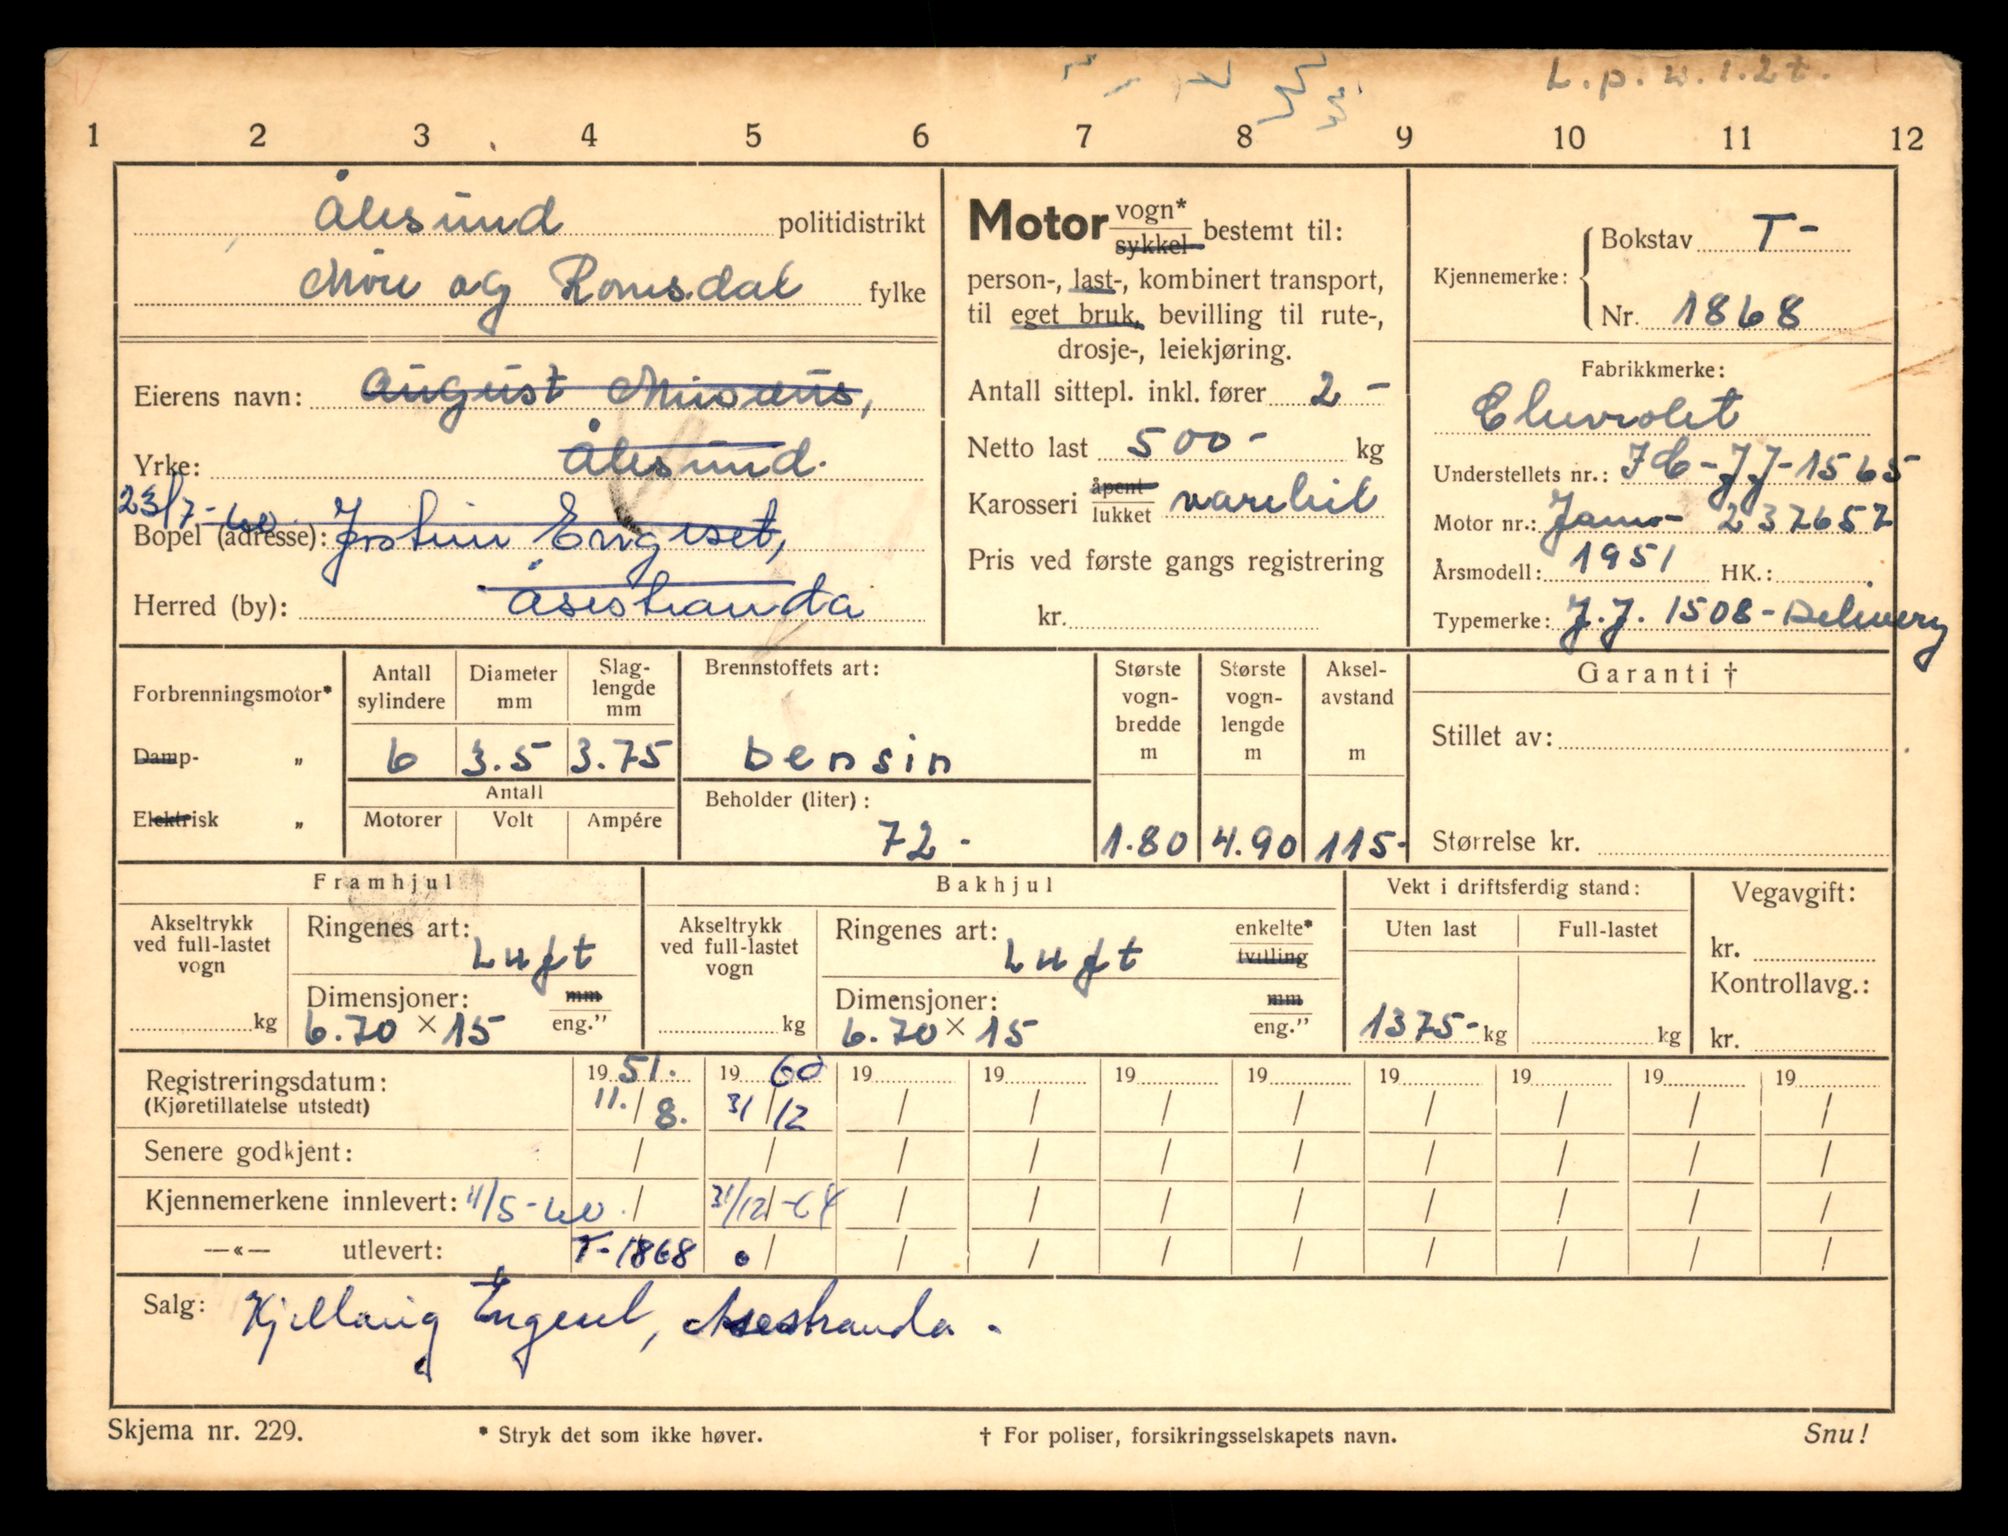 L.p.w.1.2t.
1 2 3 4 5 6 7 8 9 10 11 12
Ålesund politidistrikt
Møre og Romsdal fylke
Eierens navn: August
Yrke: Ålesund.
23/7-60
Bopel (adresse): Jostein Engeset,
Herred (by): Åsestranda
Motor vogn* sykkel bestemt til:
person-, last-, kombinert transport,
til eget bruk, bevilling til rute-,
drosje-, leiekjøring.
Antall sittepl. inkl. fører 2 -
Netto last 500 - kg
Karosseri åpent lukket varebil
Pris ved første gangs registrering
kr.
Kjennemerke: Bokstav T -
Nr. 1868
Fabrikkmerke:
Chevrolet
Understellets nr.: JJ-1565
Motor nr.: 237657
Årsmodell: 1951 HK.:
Typemerke: J.J. 1508 - Delivery
Forbrenningsmotor*
Damp- „
Elektrisk „
Antall sylindere Diameter mm Slag-lengde mm
6 3.5 3.75
Antall
Motorer Volt Ampére
Brennstoffets art:
bensin
Beholder (liter):
72 -
Største vogn-bredde m
1.80
Største vogn-lengde m
4.90
Aksel-avstand m
115-
Garanti †
Stillet av:
Størrelse kr.
Framhjul
Akseltrykk ved full-lastet vogn
kg
Ringenes art:
Luft
Dimensjoner: mm
6.70 × 15 eng.”
Bakhjul
Akseltrykk ved full-lastet vogn
kg
Ringenes art: enkelte*
Luft tvilling
Dimensjoner: mm
6.70 × 15 eng.”
Vekt i driftsferdig stand:
Uten last Full-lastet
1375- kg kg
Vegavgift:
kr.
Kontrollavg.:
kr.
Registreringsdatum: 19 51. 19 60 19 19 19 19 19 19 19 19
(Kjøretillatelse utstedt) 11./8. 31/12 / / / / / / / /
Senere godkjent: / / / / / / / / / /
Kjennemerkene innlevert: 11/5-60 / 31/12-64 / / / / / / / /
—«— utlevert: T-1868 / / / / / / / / /
Salg: Kjellaug Engeset, Åsestranda.
Skjema nr. 229. * Stryk det som ikke høver. † For poliser, forsikringsselskapets navn. Snu!